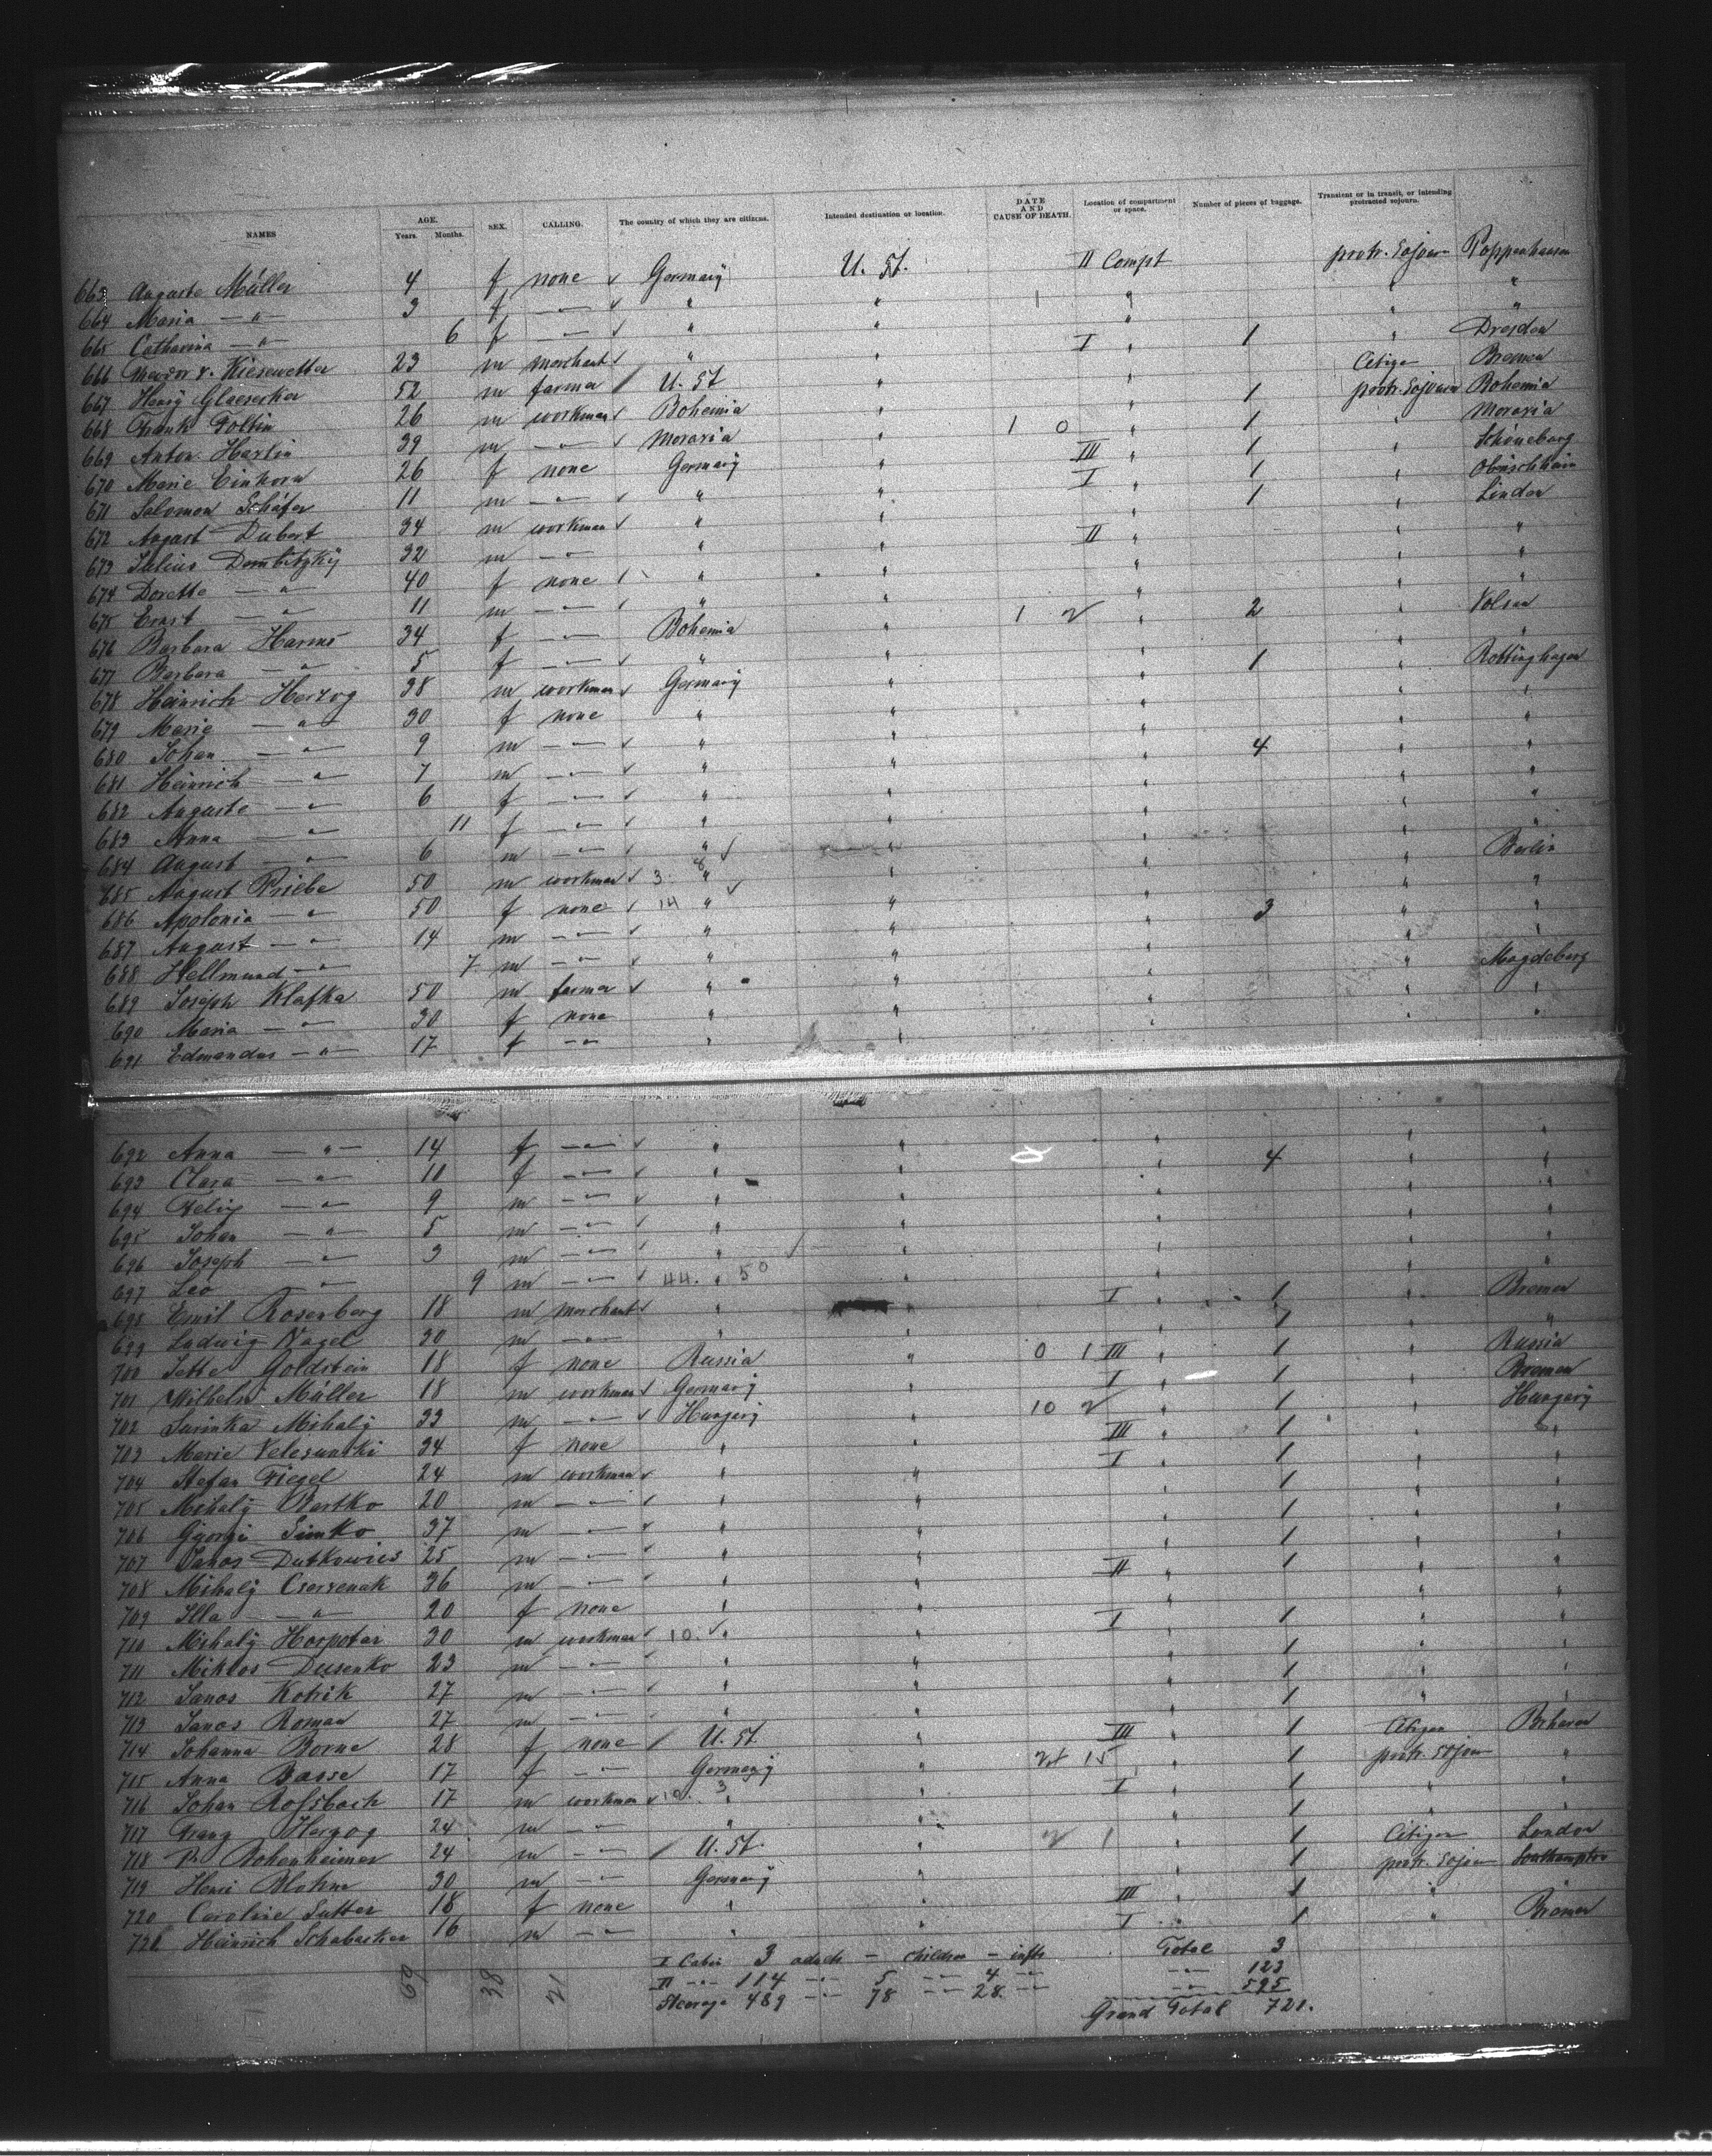 NAMES AGE. Years. Months. SEX. CALLING. The country of which they are citizens. Intended destination or location. DATE AND CAUSE OF DEATH. Location of compartment or space. Number of pieces of baggage. Transient or in transit, or intending protracted sojourn.
663 Auguste Müller 4 f none Germany U. St. II Compt protr. Sojour Poppenhausen
664 Maria — " — 3 f — " — " " 1 " " "
665 Catharina — " — 6 f — " — " " " " "
666 v. Kiesewetter 23 m merchant " " I " 1 " Dresden
667 Henry Glaesecker 52 m farmer U. St " " Citizen Bremen
668 Frank Foltin 26 m workman Bohemia " " 1 protr. Sojourn Bohemia
669 Anton Hartin 39 m — " — Moravia " 1 0 " 1 " Moravia
670 Marie Einhorn 26 f none Germany " III " 1 " Schöneberg
671 Salomon Schäfer 11 m — " — " " I " 1 "
672 August Dubert 34 m workman " " " 1 " Linden
673 Julius Dombitzky 32 m — " — " " II " " "
674 Dorette — " — 40 f none " " " " "
675 Ernst — " — 11 m — " — " " " " "
676 Barbara Harms 34 f — " — Bohemia " 1 2 " 2 "
677 Barbara — " — 5 f — " — " " " " "
678 Heinrich Herzog 38 m workman Germany " " 1 " Rottinghagen
679 Marie — " — 30 f none " " " " "
680 Johan — " — 9 m — " — " " " " "
681 Heinrich — " — 7 m — " — " " " 4 " "
682 Auguste — " — 6 f — " — " " " " "
683 Anna — " — 11 f — " — " " " " "
684 August — " — 6 m — " — " " " " "
685 August Priebe 50 m workman 3. 8 " " " " Berlin
686 Apolonia — " — 50 f none 14 " " " " "
687 August — " — 14 m — " — " " " 3 " "
688 Hellmund — " — 7 m — " — " " " " "
689 Joseph Klafka 50 m farmer " " " " Magdeburg
690 Maria — " — 30 f none " " " " "
691 Edmandas — " — 17 f — " — " " " " "
692 Anna — " — 14 f — " — " " " " "
693 Clara — " — 10 f — " — " " " 4 " "
694 Felix — " — 9 m — " — " " " " "
695 Johan — " — 5 m — " — " " " " "
696 Joseph — " — 3 m — " — " " " " "
697 Leo — " — 9 m — " — 44. " 50 " " " "
698 Emil Rosenberg 18 m merchant " I " 1 " Bremen
699 Ludwig Nagel 30 m — " — " " " 1 " "
700 Jette Goldstein 18 f none Russia " 0 1 III " 1 " Russia
701 Wilhelm Müller 18 m workman Germany " I " 1 " Bremen
702 Surinka Mihaly 33 m — " — Hungary " 10 2 " 1 " Hungary
703 Marie 34 f none " " III " 1 " "
704 Stefan Fiegel 24 m workman " " I " 1 " "
705 Mihaly Bartko 20 m — " — " " " 1 " "
706 Gyorgi Simko 37 m — " — " " " 1 " "
707 Janos Dutkowics 25 m — " — " " " 1 " "
708 Mihaly Cservenak 36 m — " — " " II " 1 " "
709 Illa — " — 20 f none " " " " "
710 Mihaly Horpotai 30 m workman 10. " " I " 1 " "
711 Miklos Dusenko 23 m — " — " " " 1 " "
712 Janos Kotrik 27 m — " — " " " 1 " "
713 Janos Roman 27 m — " — " " " 1 " "
714 Johanna Borne 28 f none U. St. " III " 1 Citizen Brhaven
715 Anna Basse 17 f — " — Germany " 2 15 " 1 protr. Sojour "
716 Johan Rossbach 17 m workman 10. 3 " " I " 1 " "
717 Franz Herzog 24 m — " — " " " 1 " "
718 Bohenheimer 24 m — " — U. St. " 2 1 " 1 Citizen London
719 Henri Blohm 30 m — " — Germany " " 1 protr. Sojour Southampton
720 Caroline Sutter 18 f none " " III " 1 " "
721 Heinrich Schabacker 16 m — " — " " I " 1 " Bremen
I Cabin 3 adults — children — infts Total 3
II — " — 114 — " — 5 — " — 4 — " — — " — 123
Steerage 489 — " — 78 — " — 28. — " — — " — 595
Grand Total 721.
69 38 21